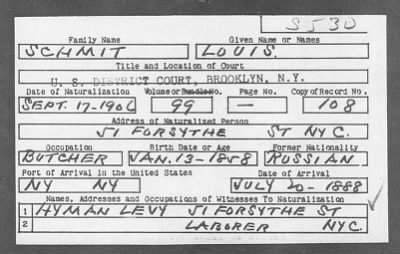 S530
Family Name Given Name or Names
SCHMIT LOUIS.
Title and Location of Court
U. S. DISTRICT COURT, BROOKLYN, N.Y.
Date of Naturalization Volume or Bundle No. Page No. Copy of Record No.
SEPT. 17-1906 99 — 108
Address of Naturalized Person
51 FORSYTHE ST NYC.
Occupation Birth Date or Age Former Nationality
BUTCHER JAN. 13-1858 RUSSIAN
Port of Arrival in the United States Date of Arrival
NY NY JULY 20-1888
Names, Addresses and Occupations of Witnesses To Naturalization
1 HYMAN LEVY 51 FORSYTHE ST
2 LABORER NYC.